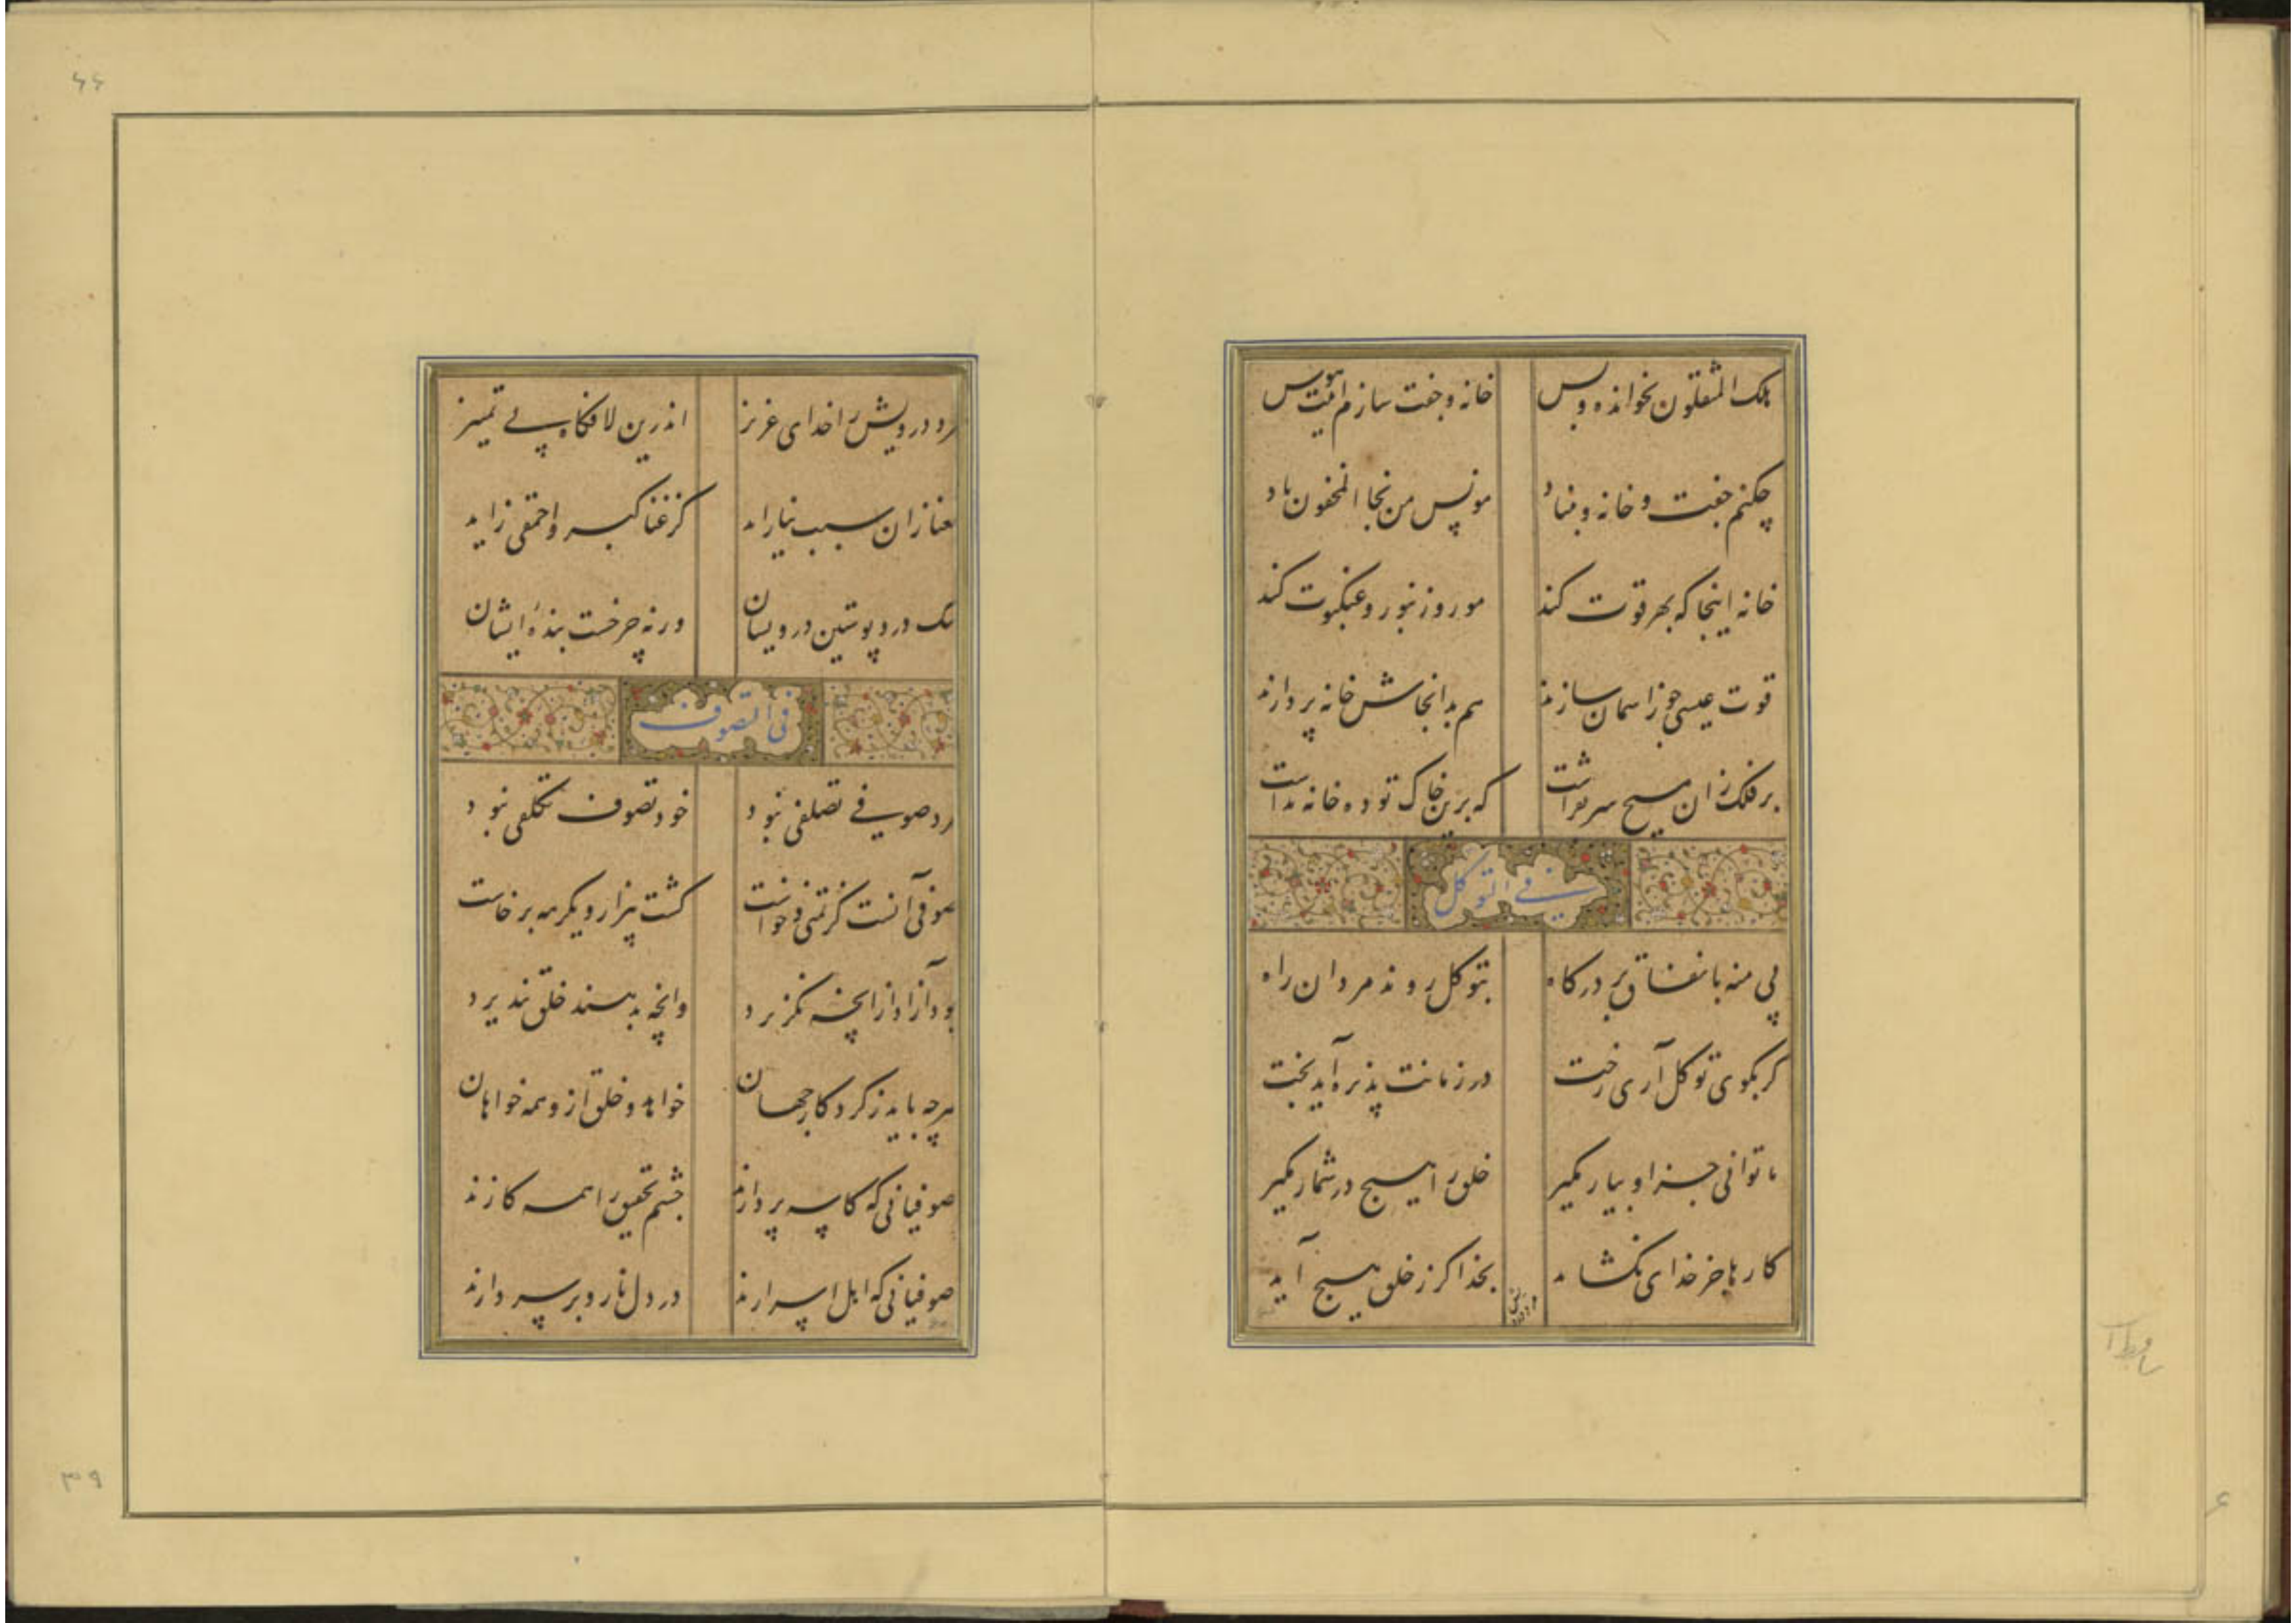 هلک المثقلون نخوانده و بس خانه و جفت سازم اینت هوس
چکنم جفت و خانه و بنیاد مونس من نجا المخفون باد
خانه اینجا که بهر قوت کند مور و زنبور و عنکبوت کند
قوت عیسی چو ز آسمان سازند هم بدانجاش خانه پردازند
بر فلک زان مسیح سر بفراشت که برین خاک توده خانه نداشت
فی التوکل
پی منه با نفاق بر درگاه بتوکل روند مردان راه
گر بکوی توکل آری رخت در زمانت پذیره آید بخت
تا توانی جز او بیار مگیر خلق را هیچ در شمار مگیر
کارها جز خدای نگشاید بخدا گر ز خلق هیچ آید
مرد درویش
مرد درویش را خدای عزیز اندرین لافگاه بی تمییز
غنا زان سبب نیاراید کز غنا کبر و احمقی زاید
سگ درد پوستین درویشان ورنه چرخست بندهٔ ایشان
فی التصوف
مرد صوفی تصلفی نبود خود تصوف تکلفی نبود
صوفی آنست کز تمنی و خواست گشت بیزار و یکره برخاست
بود آزاد از آنچه نگزیرد وانچه بدهند خلق نپذیرد
هرچه باید ز کردگار جهان خواهد و خلق ازو همه خواهان
صوفیانی که کاسه پردازند چشم تحقیق را همه گازند
صوفیانی که اهل اسرارند در دل نار و بر سر دارند
۶۶
۳۹